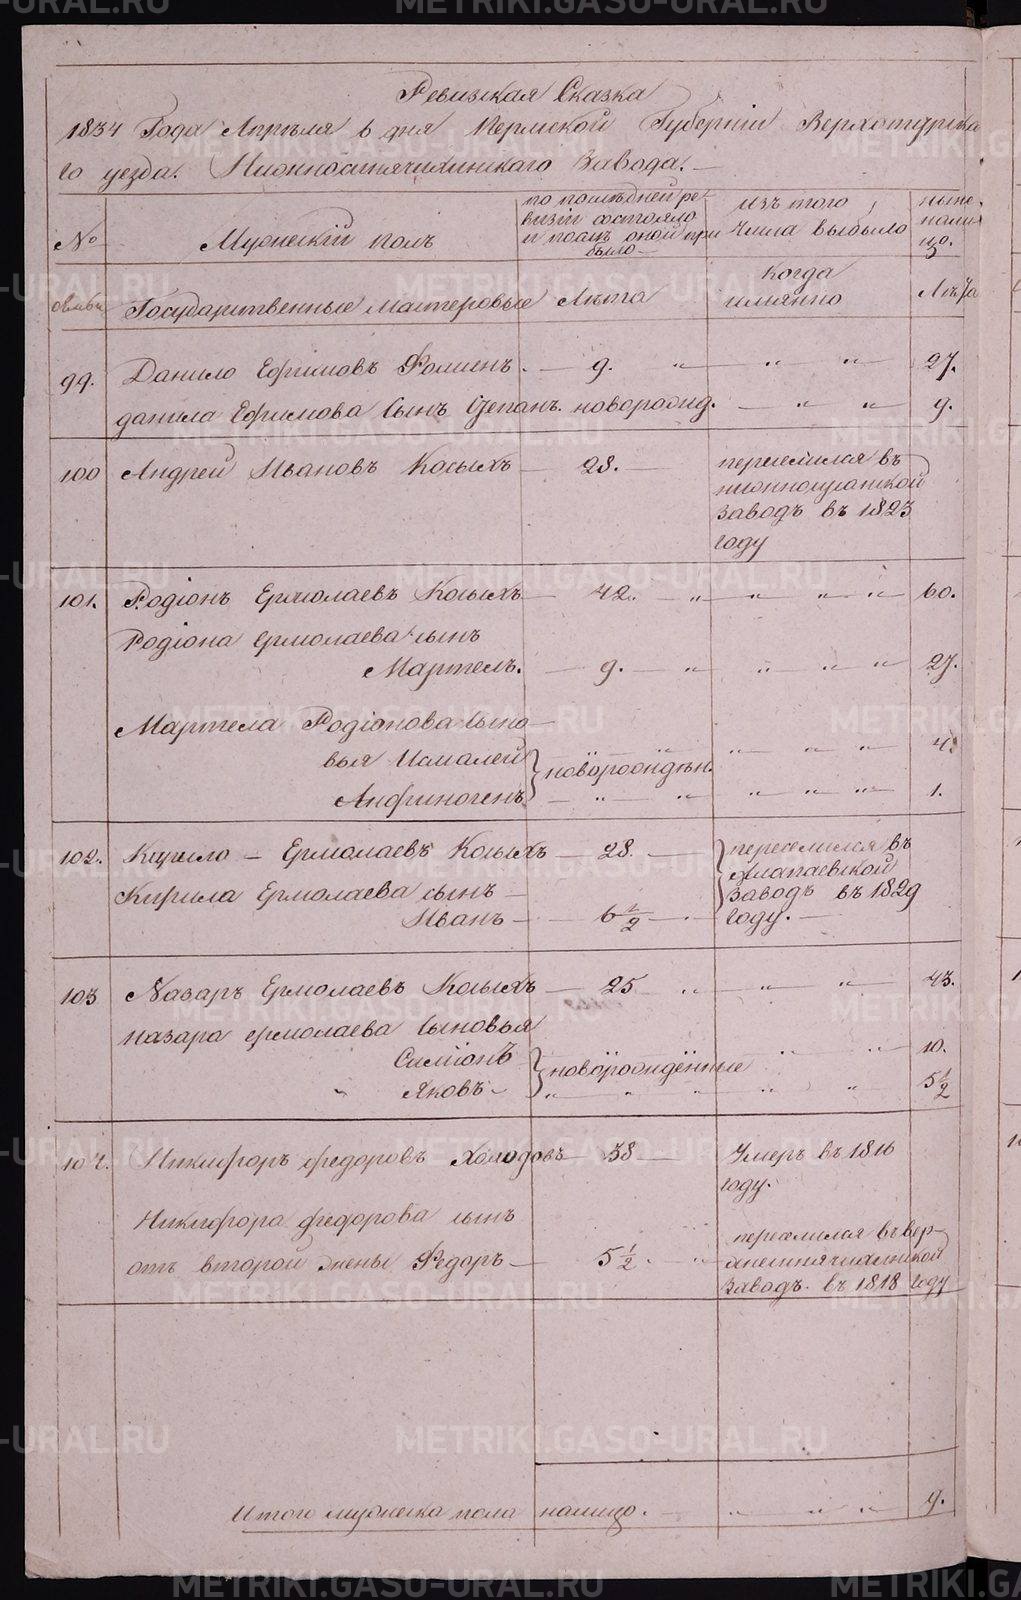 Ревизская Сказка
1834 Года Апреля 6 дня Пермской Губернiи Верхотурска
го уезда. Нижносинячихинскаго Завода. —
№ Мужескiй полъ по последней ре-
визiи состояло
и после оной при
было — Изъ того
числа выбыло ныне
нали
цо.
семьи Государственные мастеровые Лѣта когда
имянно Лѣта
99. Данило Ефимовъ Фоминъ. — 9. „ „ „ 27.
данила Ефимова сынъ Степанъ. новорожд. — „ „ 9.
100 Андрей Ивановъ Косыхъ — 28. — переселился въ
нижносусанской
заводъ въ 1823
году
101. Родiонъ Ермолаевъ Косыхъ — 42. „ „ „ „ 60.
Родiона Ермолаева сынъ
Мартелъ. — 9. „ „ „ „ 27.
Мартела Родiонова сыно —
вья
новорожден. „ „ „ 4.
Анфиногенъ — „ „ „ „ „ 1.
102. Кирило — Ермолаевъ Косыхъ — 28. — переселился въ
Алапаевской
Кирила Ермолаева сынъ — заводъ въ 1829
Иванъ — 6 1/2 — году. —
103 Назаръ Ермолаевъ Косыхъ — 25 „ „ „ 43.
назара ермолаева сыновья
Симiонъ новорожденные „ „ 10.
„ Яковъ — „ „ „ „ „ 5 1/2
104. Никифоръ федоровъ Холодовъ — 38 — Умеръ въ 1816
году.
Никифора федорова сынъ
отъ второй жены Федоръ — 5 1/2. „ переселился въ вер-
хнесинячихинской
заводъ. въ 1818 году
Итого мужеска пола налицо. — „ „ „ 9.
METRIKI.GASO-URAL.RU